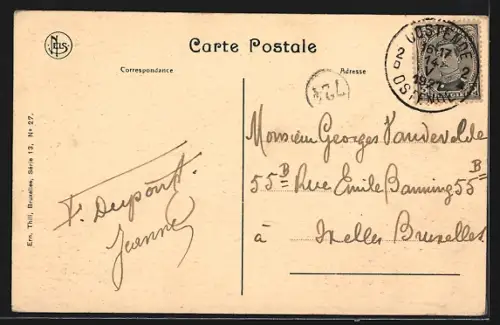 NELS
Carte Postale
Correspondance
Adresse
OOSTENDE
2D
16-17
1921
2
OSTENDE
Monsieur Georges Vandevelde
55B Rue Emile Banning 55B
à Ixelles Bruxelles
F. Dupont
Jeanne
Ern. Thill, Bruxelles, Série 12, No 27.